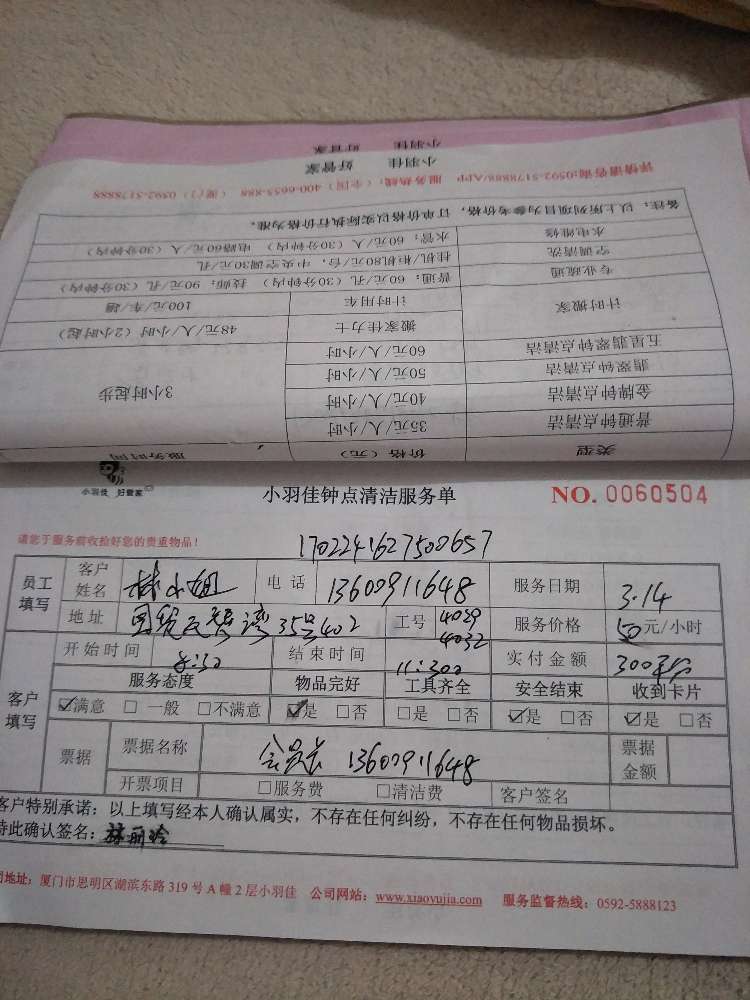 小羽佳 好管家
详情请咨询:0592-5178888/APP 服务热线:(全国)400-6653-888 (厦门) 0592-5178888
备注：以上所列项目为参考价格，订单价格以实际执行价格为准。
水电维修 水管：60元/人（30分钟内） 电路60元/人（30分钟内）
空调清洗 挂机/柜机80元/台，中央空调30元/孔
专业疏通 普通：60元/孔（30分钟内） 技师：90元/孔（30分钟内）
计时搬家 计时用车 100元/车/趟
搬家佳力士 48元/人/小时（2小时起）
五星翡翠钟点清洁 60元/人/小时
翡翠钟点清洁 50元/人/小时 3小时起步
金牌钟点清洁 40元/人/小时
普通钟点清洁 35元/人/小时
类型 价格（元） 服务时间
小羽佳 好管家
小羽佳钟点清洁服务单 NO. 0060504
请您于服务前收捡好您的贵重物品！
1702241627500657
员工填写 客户姓名 林小姐 电话 13600911648 服务日期 3.14
地址 35号402 工号 4029 4032 服务价格 50元/小时
开始时间 8:30 结束时间 11:30 实付金额 300
客户填写 服务态度 物品完好 工具齐全 安全结束 收到卡片
☑满意 □一般 □不满意 ☑是 □否 □是 □否 ☑是 □否 ☑是 □否
票据 票据名称 会员卡 13600911648 票据金额
开票项目 □服务费 □清洁费 客户签名
客户特别承诺：以上填写经本人确认属实，不存在任何纠纷，不存在任何物品损坏。
特此确认签名：林丽玲
司地址：厦门市思明区湖滨东路 319 号 A 幢 2 层小羽佳 公司网站：www.xiaoyujia.com 服务监督热线：0592-5888123